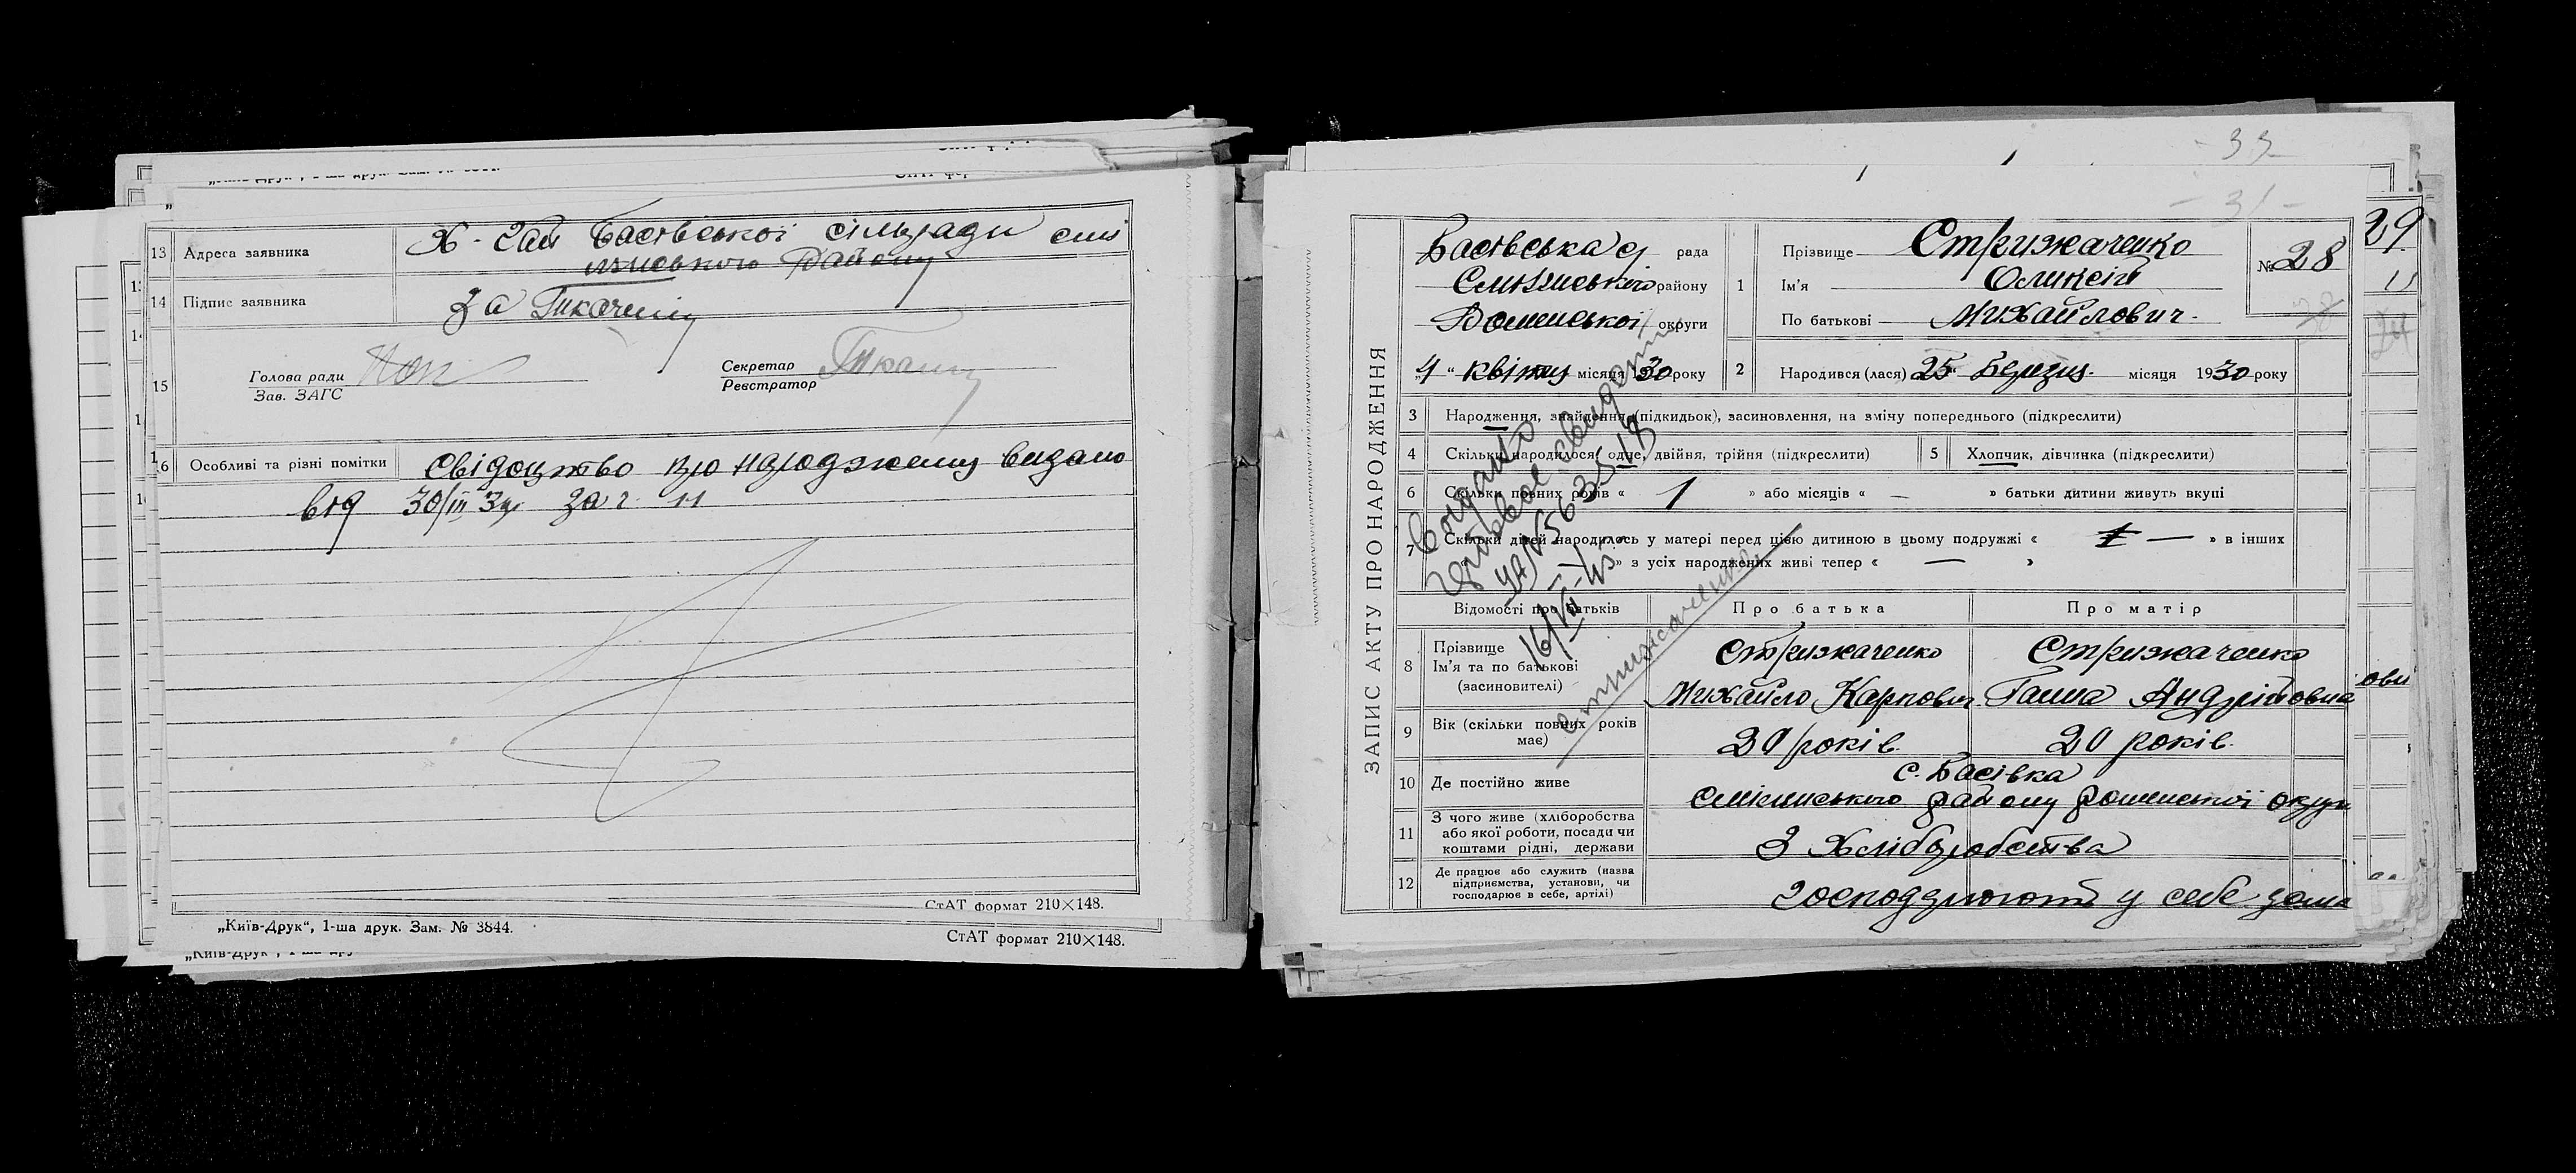 13 Адреса заявника Х-Гай Басівської сільради смі
лянського району
14 Підпис заявника за Ткаченко
15 Голова ради
Зав. ЗАГС
Секретар
Реєстратор
16 Особливі та різні помітки Свідоцтво про народження видано
від 30/III 30 за ч 11
СтАТ формат 210×148.
„Київ-Друк“, 1-ша друк. Зам. № 3844.
СтАТ формат 210×148.
- 33
- 31 -
29
ЗАПИС АКТУ ПРО НАРОДЖЕННЯ
Басівська с/ рада
Смілянського району
Роменської округи
„4“ квітня місяця 1930 року
1 Прізвище Стрижаченко
Ім'я Олексій
По батькові Михайлович
№ 28
2 Народився (лася) „25“ Березня місяця 1930 року
3 Народження, знайдення (підкидьок), засиновлення, на зміну попереднього (підкреслити)
4 Скільки народилося: одне, двійня, трійня (підкреслити)
5 Хлопчик, дівчинка (підкреслити)
6 Скільки повних років « 1 » або місяців « — » батьки дитини живуть вкупі
7 Скільки дітей народилось у матері перед цією дитиною в цьому подружжі « — » в інших
» з усіх народжених живі тепер « — »
Відомості про батьків Про батька Про матір
8 Прізвище
Ім'я та по батькові
(засиновителі)
Стрижаченко
Михайло Карпович
Стрижаченко
Ганна Андріївна
9 Вік (скільки повних років має) 30 років. 20 років.
10 Де постійно живе с. Басівка
смілянського району роменської округи
11 З чого живе (хліборобства
або якої роботи, посади чи
коштами рідні, держави
З Хліборобства
12 Де працює або служить (назва
підприємства, установи, чи
господарює в себе, артілі)
господарюють у себе дома
Выдано
повторное свидетельство
16/VII-45
Стрижаченко